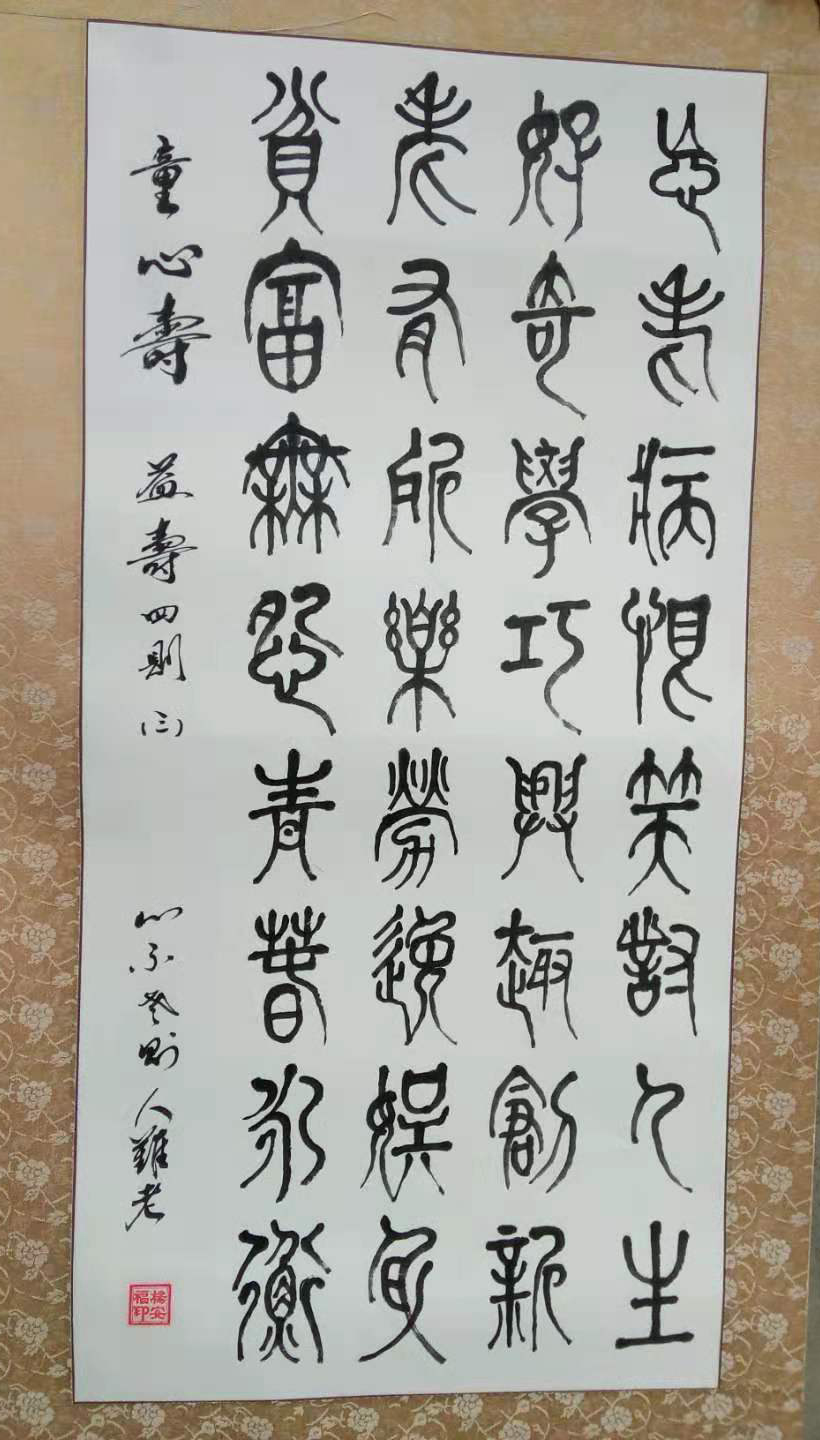 忘老病恨笑對人生
好奇學巧興趣創新
老有所樂勞逸娛身
貧富無怨青春永衡
童心壽 益壽四則(三) 心不老則人難老
楊安福印